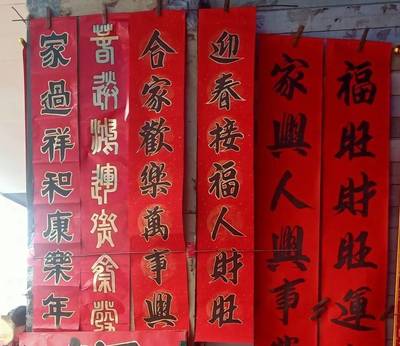 福旺財旺運
家興人興事業
迎春接福人財旺
合家歡樂萬事興
鴻運
家過祥和康樂年